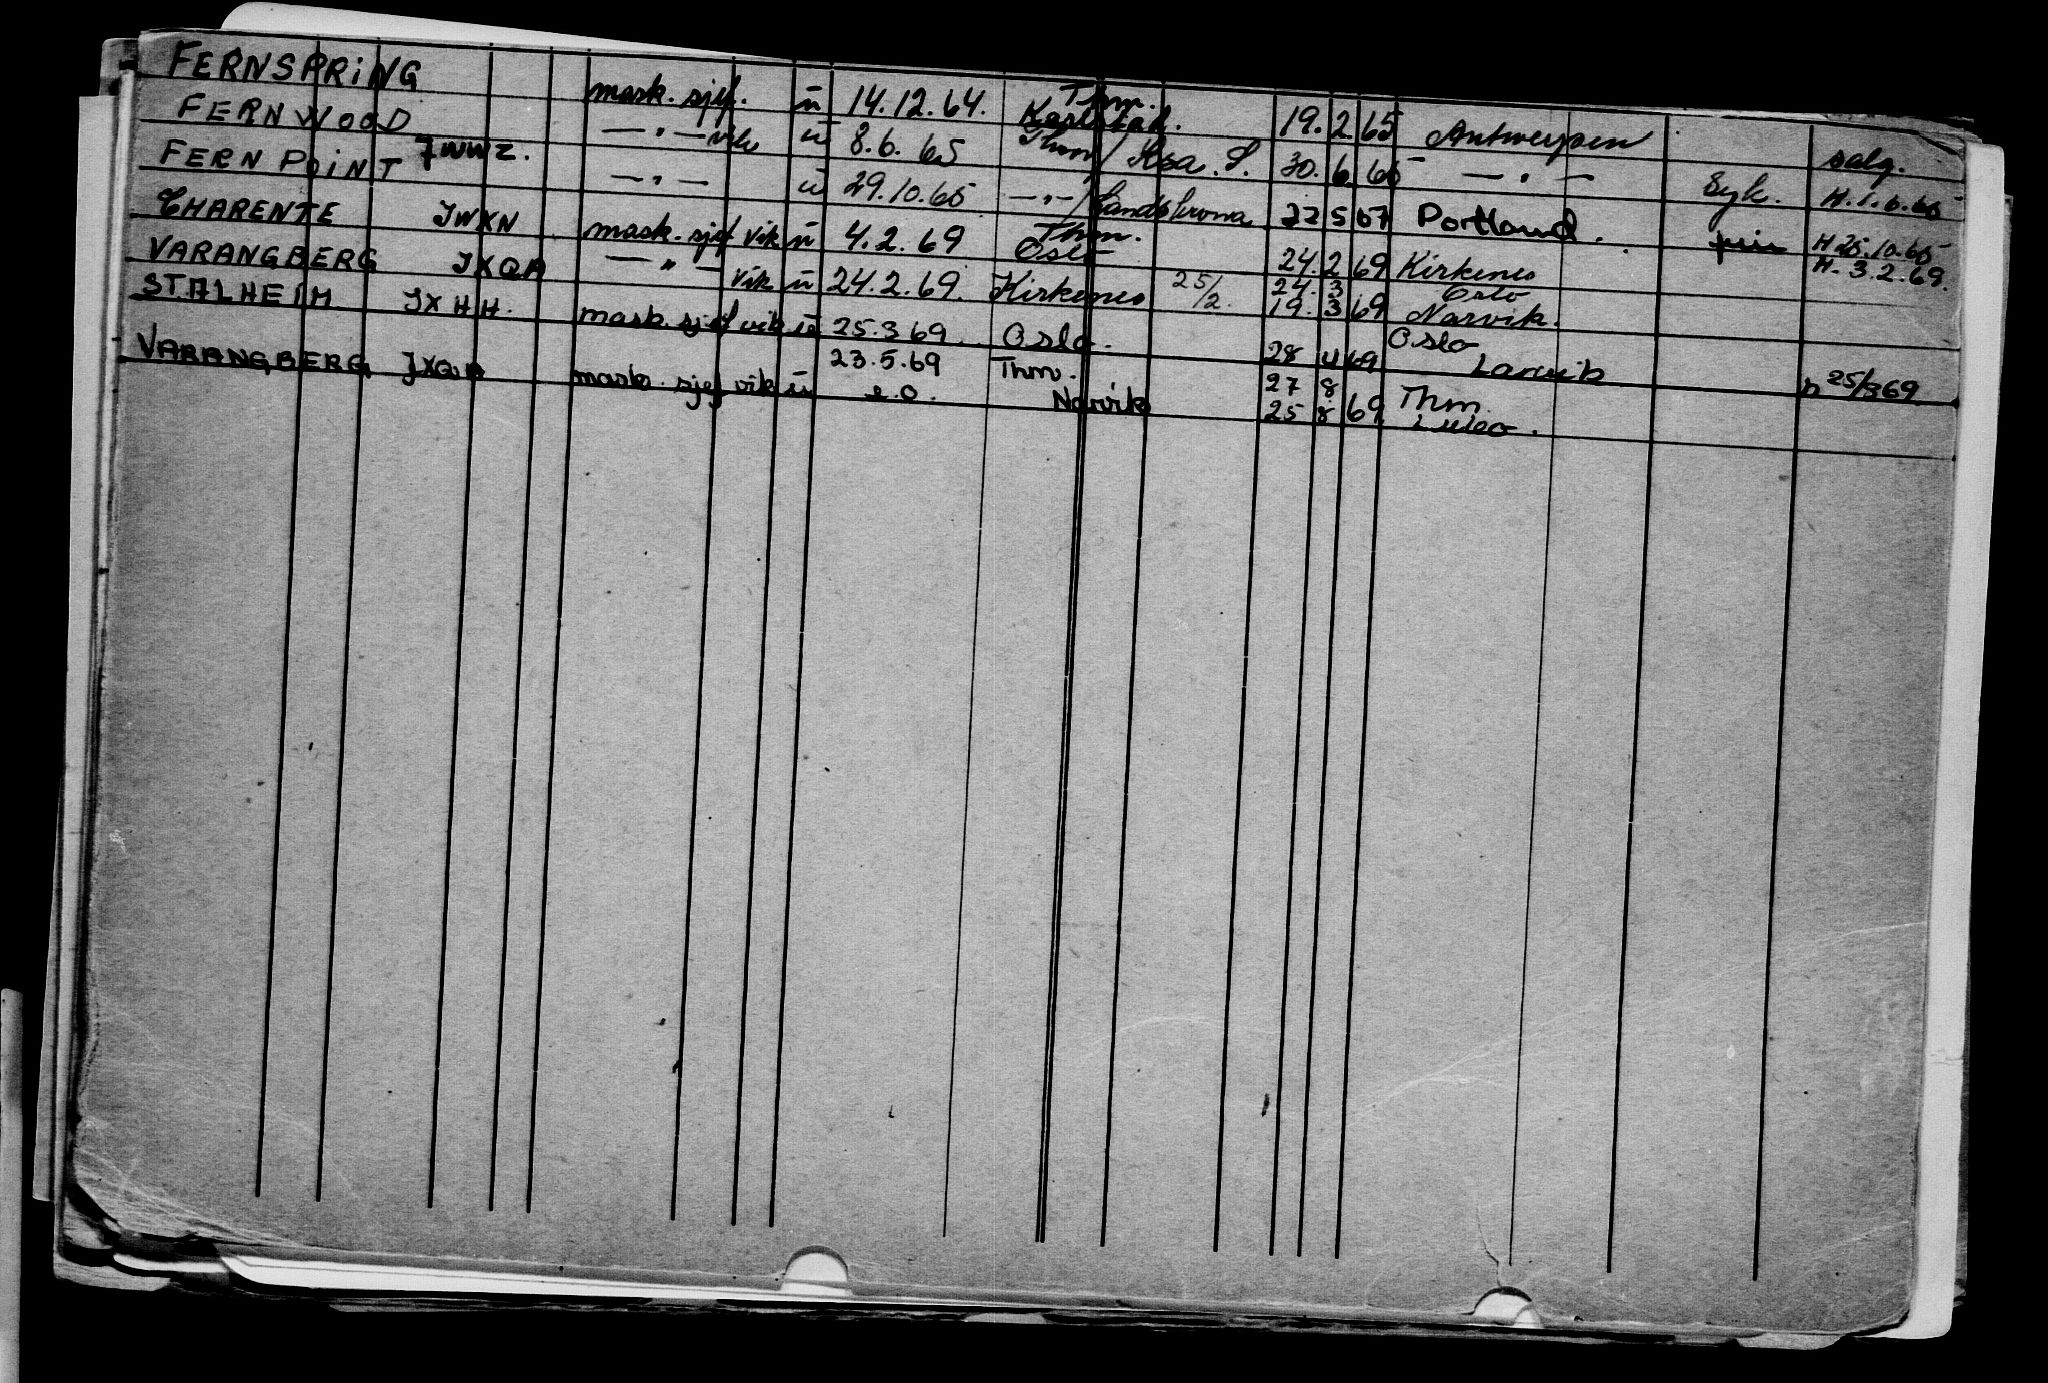 FERNSPRING mask. sjef. u 14.12.64. Thm. Karlstad. 19. 2. 65 Antwerpen salg.
FERNWOOD JWWZ. — " — vik u 8.6.65 Thm / Ksa. S. 30. 6. 65 — " — Syk. H. 1.6.65
FERN POINT — " — u 29.10.65 — " — / Landskrona 22 5 67 Portland. H 25.10.65
CHARENTE JWXN mask. sjef vik u 4.2.69 Thm. Oslo 24. 2 69 Kirkenes H. 3.2.69.
VARANGBERG JXQA — " — vik u 24.2.69. Kirkenes 25/2. 24. 3 Oslo 19. 3 69 Narvik.
STALHEIM JXHH. mask. sjef vik u 25.3 69. Oslo. 28 4 69 Oslo Larvik n 25/3 69
VARANGBERG JXQA mask. sjef vik u 23.5.69 e.o. Thm. Narvik 27 8 25 8 69 Thm. Luleo.